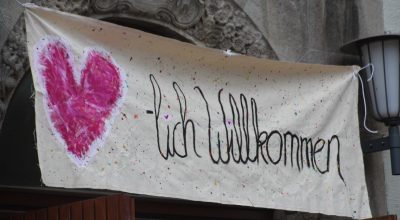 -lich Willkommen